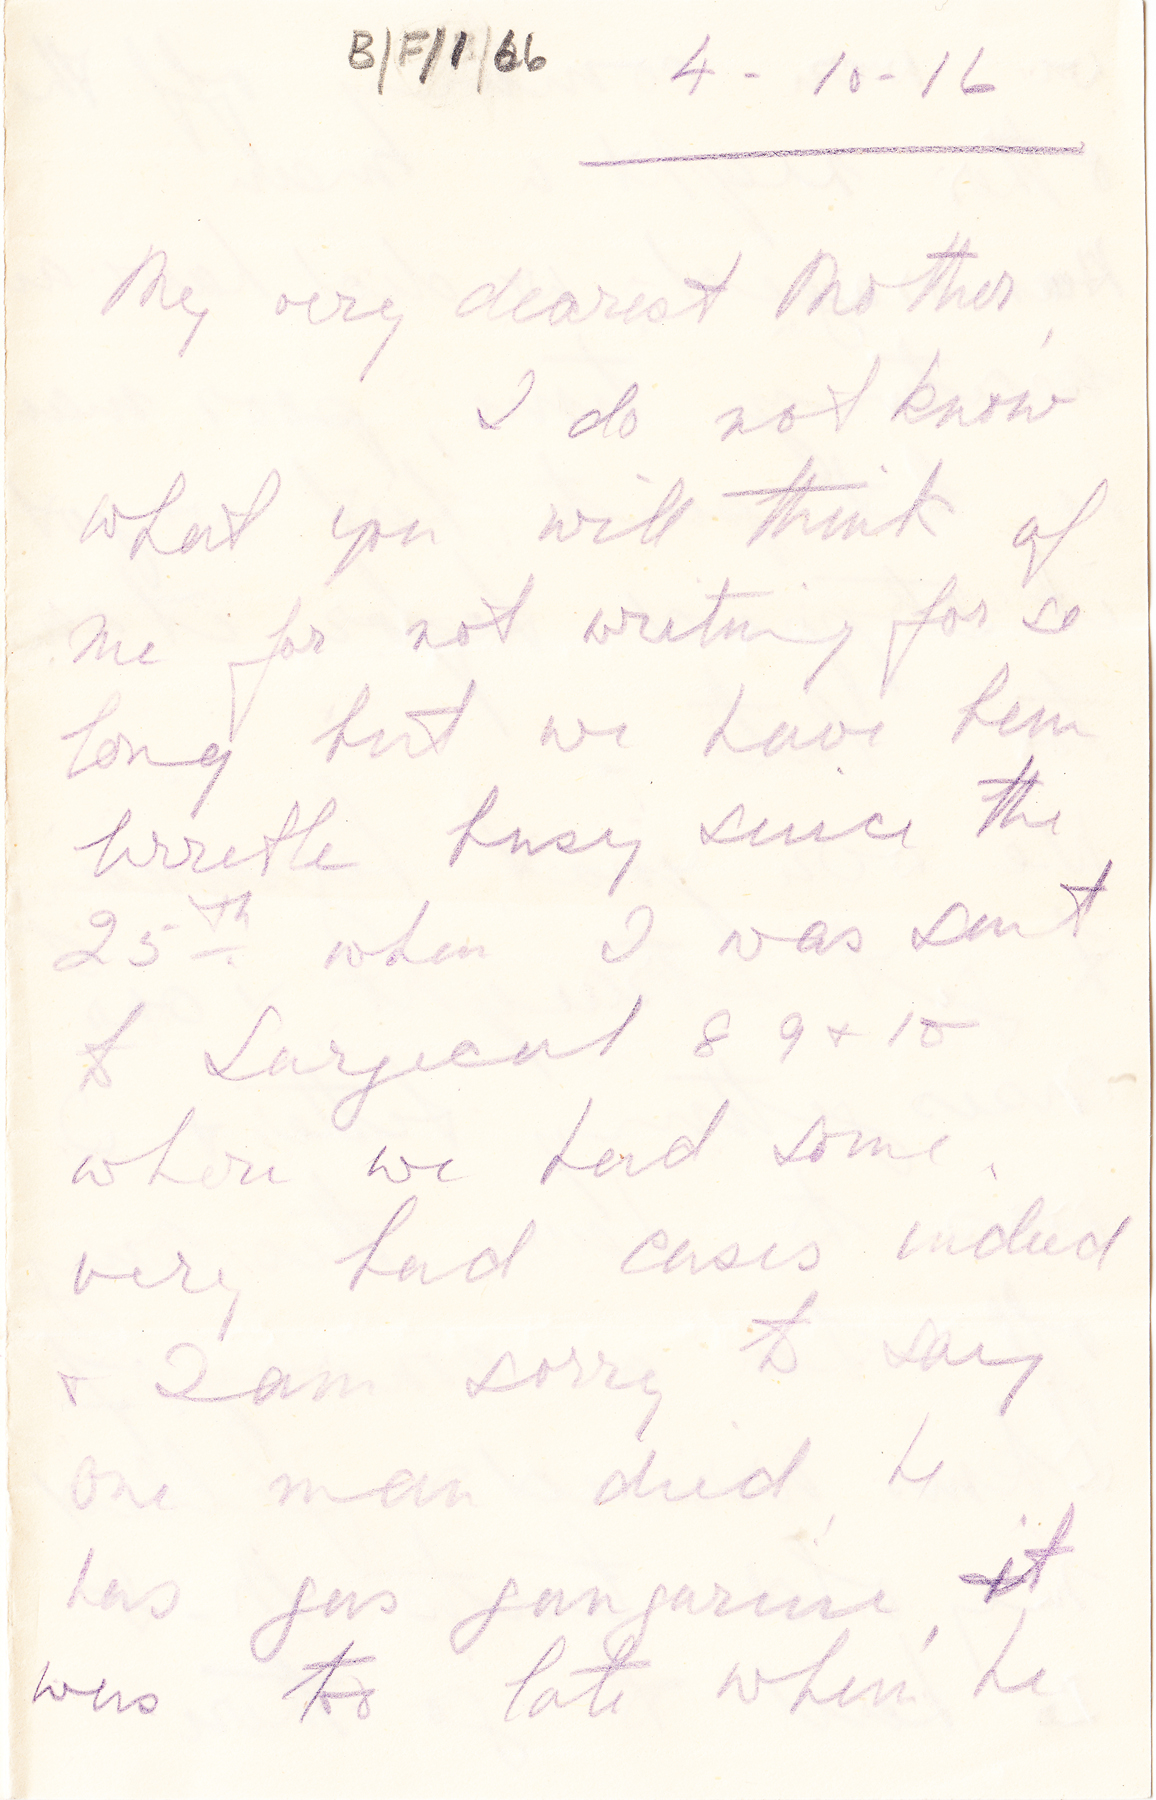 B/F/1/66
4 - 10 - 16
My very dearest Mother,
I do not know
what you will think of
me for not writing for so
long but we have been
busy since the
25th when I was sent
to Surgical 8 9 + 10
where we had some
very bad cases indeed
+ I am sorry to say
one man died, he
has gas gangarine, it
was too late when he